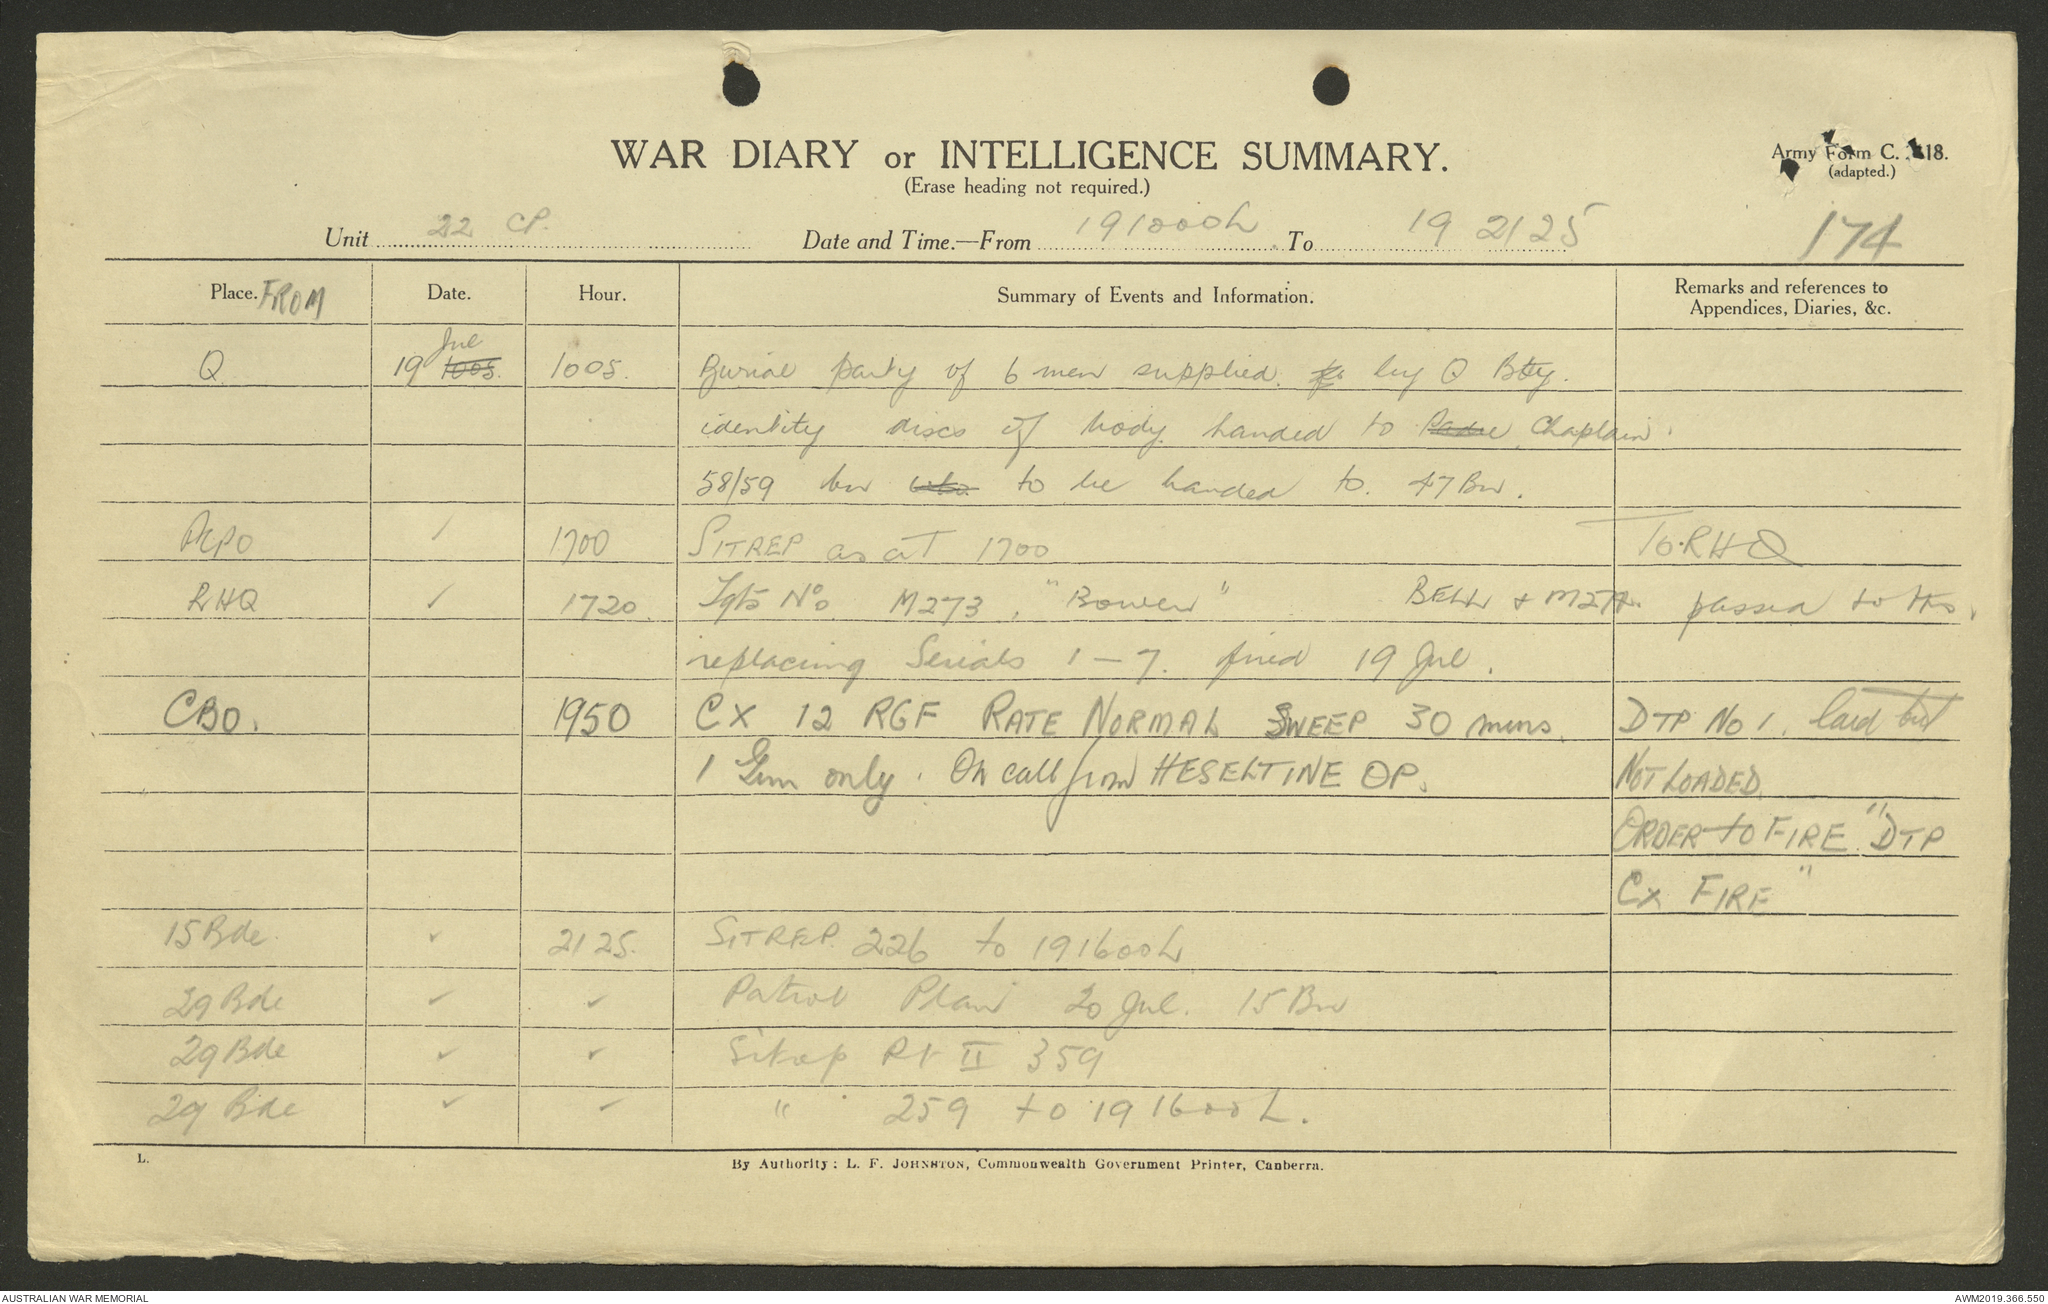 WAR DIARY or INTELLIGENCE SUMMARY.
(Erase heading not required.)
Army Form C. 118.
(adapted.)
Unit 22 CP. Date and Time.—From 191000L To 19 2125
174
Place. FROM Date. Hour. Summary of Events and Information. Remarks and references to Appendices, Diaries, &c.
Q 19 Jul 1005. 1005. Burial party of 6 men supplied. by Q Bty.
identity discs of body handed to Padre Chaplain.
58/59 bn to be handed to. 47 Bn.
✓ 1700 SITREP as at 1700 To RHQ
RHQ ✓ 1720 Tgts No. M273, "Bowen" BELL + M274. passed to
replacing Serials 1 – 7. fired 19 Jul.
CBO. 1950 CX 12 RGF RATE NORMAL SWEEP 30 mins. DTP No 1. laid but
1 Gun only. On call from HESELTINE OP. NOT LOADED.
ORDER to FIRE "DTP
CX FIRE"
15 Bde. ✓ 2125. SITREP. 226 to 191600L
29 Bde ✓ ✓ Patrol Plan 20 Jul. 15 Bn
29 Bde ✓ ✓ Sitrep Pt II 359
29 Bde ✓ ✓ " 259 to 191600L.
L.
By Authority: L. F. JOHNSTON, Commonwealth Government Printer, Canberra.
AUSTRALIAN WAR MEMORIAL
AWM2019.366.550